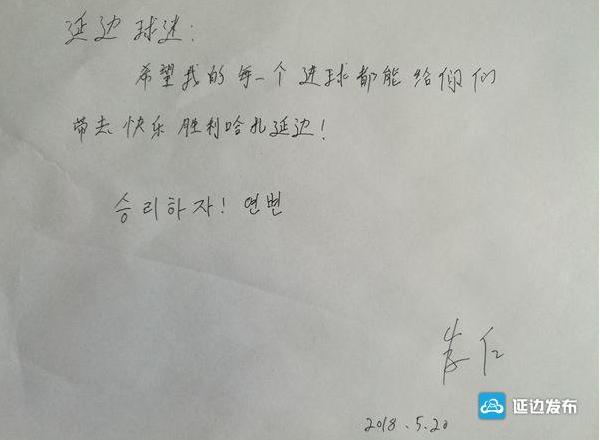 延边球迷:
希望我的每一个进球都能给你们
带去快乐 胜利哈扎延边!
승리하자! 연변
2018.5.20
延边发布